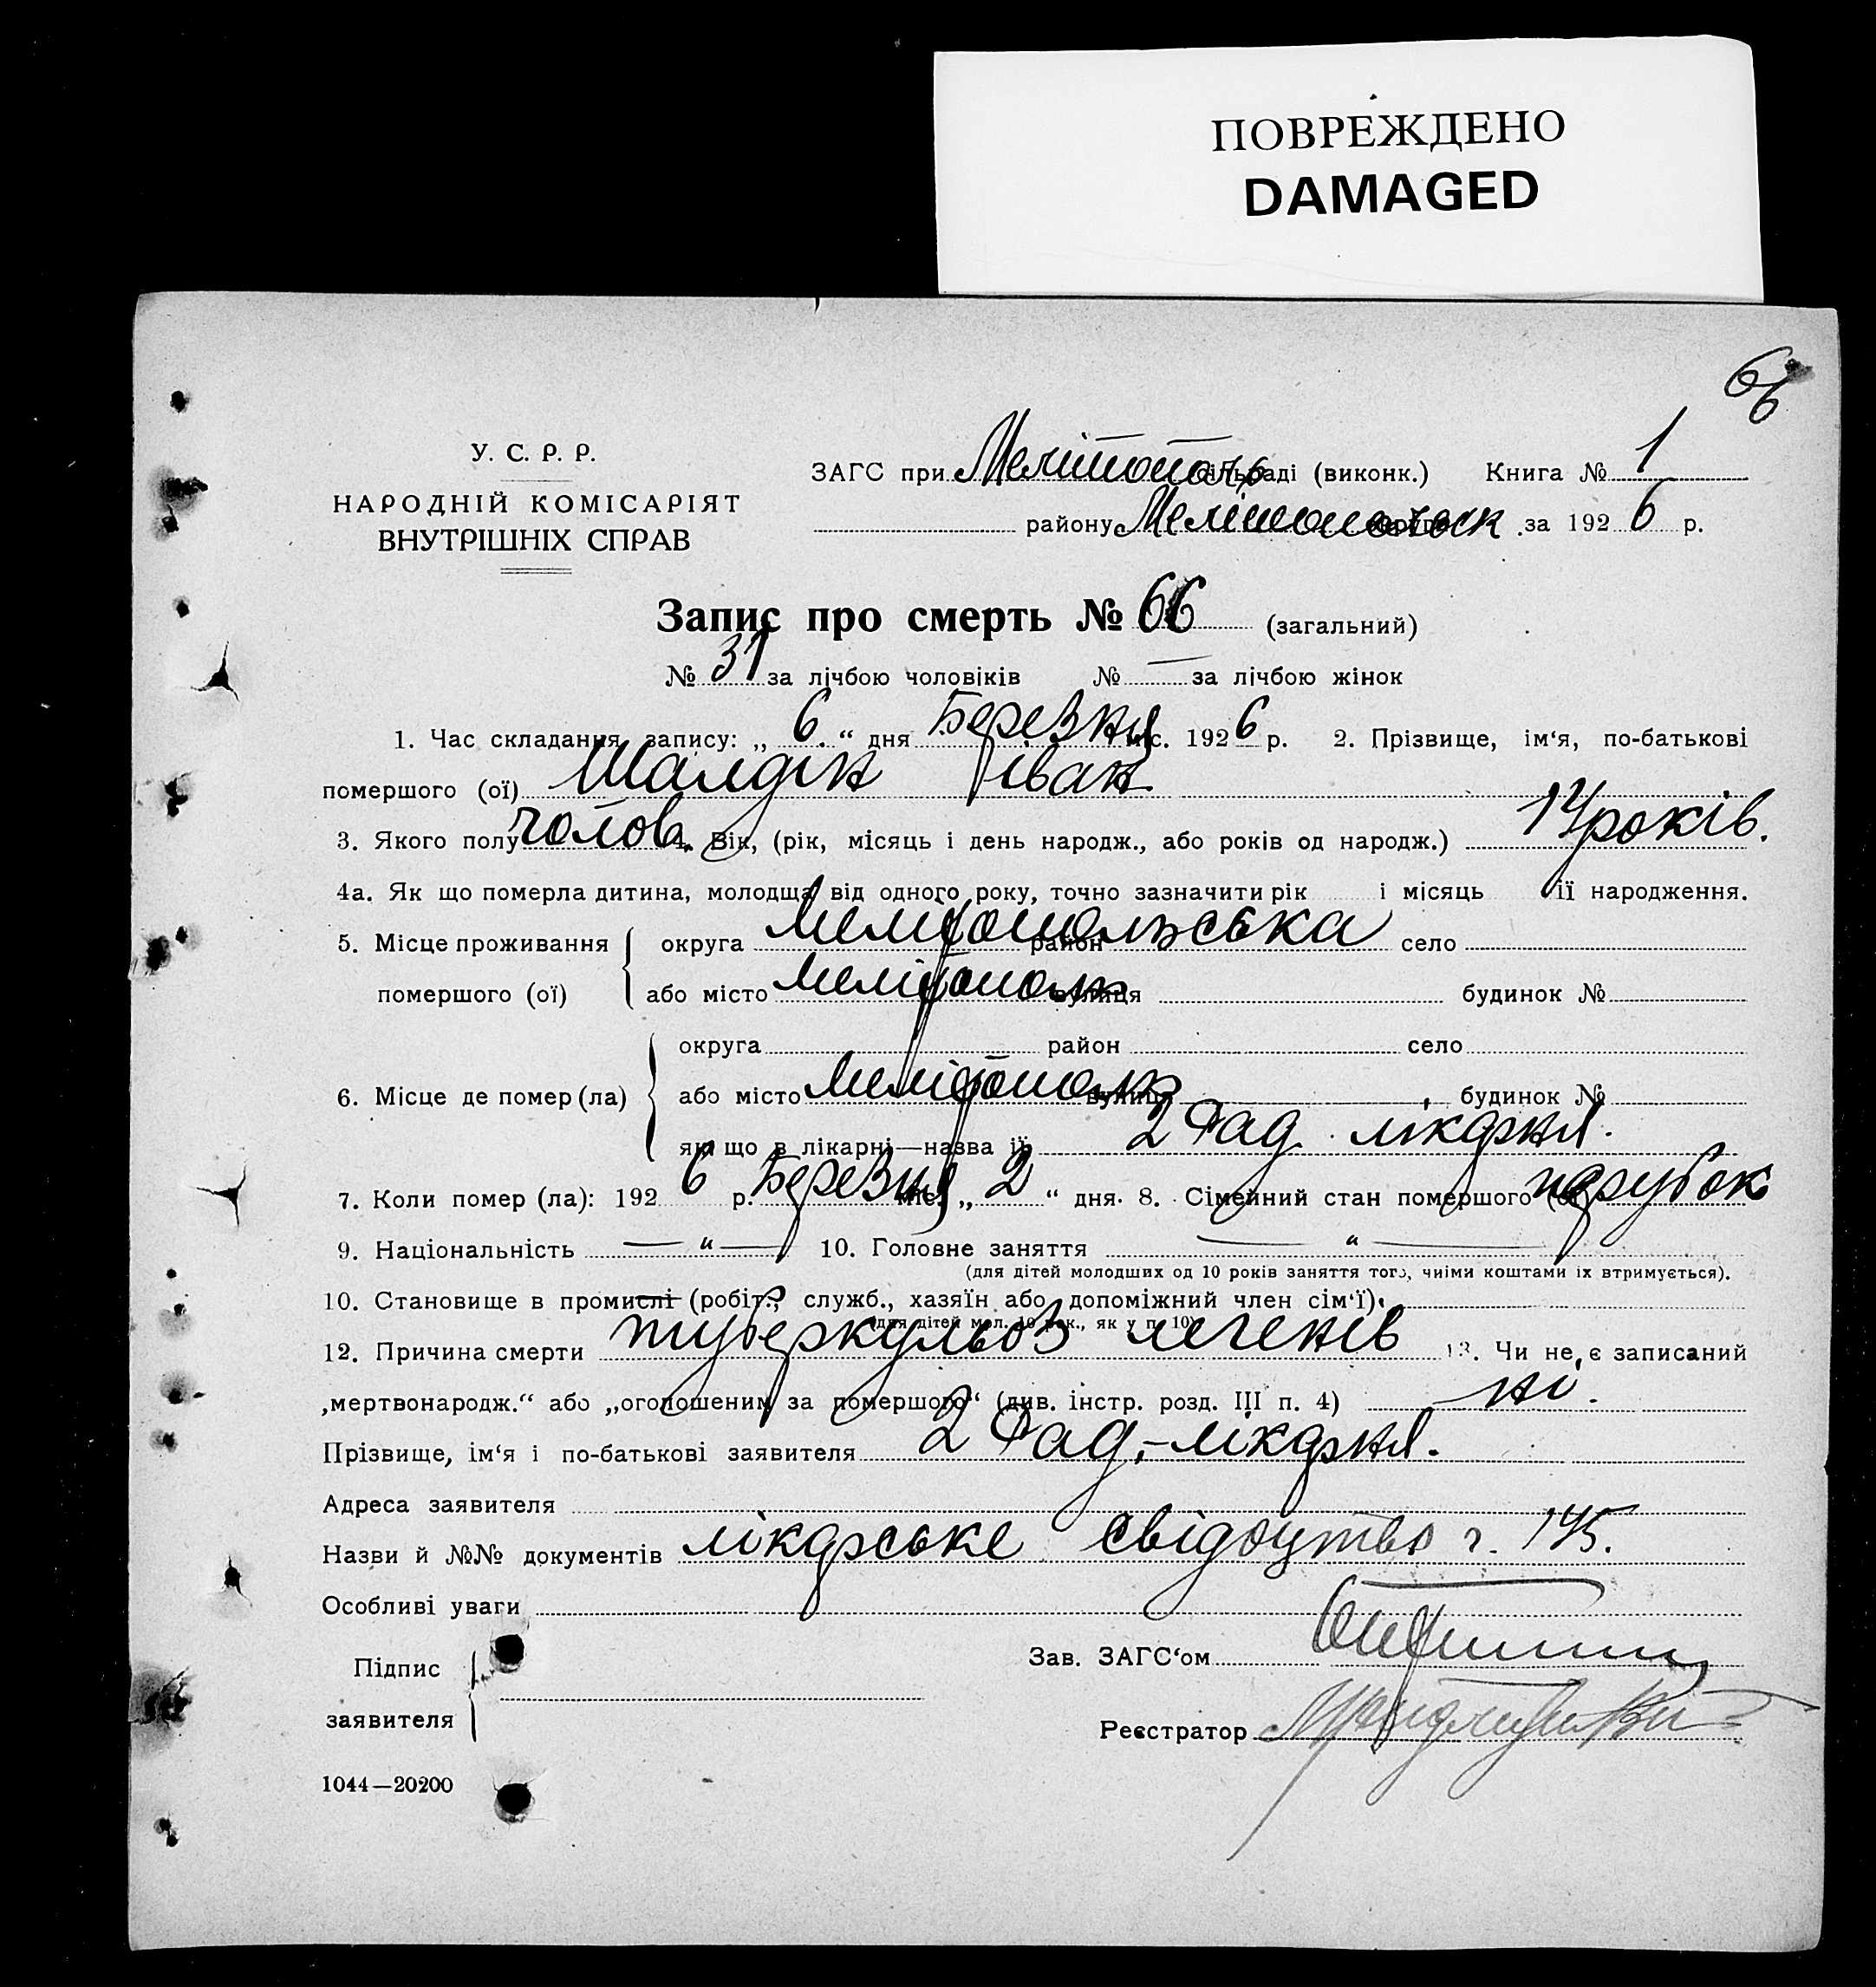 ПОВРЕЖДЕНО
DAMAGED
66
У. С. Р. Р.
НАРОДНІЙ КОМІСАРІЯТ
ВНУТРІШНІХ СПРАВ
ЗАГС при Мелітополь сільраді (виконк.) Книга № 1
району Мелітопольськ округи за 1926 р.
Запис про смерть № 66 (загальний)
№ 31 за лічбою чоловіків № — за лічбою жінок
1. Час складання запису: „ 6 “ дня Березня міс. 1926 р. 2. Прізвище, ім‘я, по-батькові
помершого (ої) Шалдін Іван
3. Якого полу чолов. 4. Вік, (рік, місяць і день народж., або років од народж.) 14 років.
4а. Як що померла дитина, молодща від одного року, точно зазначити рік і місяць її народження.
5. Місце проживання помершого (ої) { округа Мелітопольська район село
або місто Мелітополь вулиця будинок №
6. Місце де помер (ла) { округа район село
або місто Мелітополь вулиця будинок №
як що в лікарні—назва її 2 Рад. лікарня.
7. Коли помер (ла): 1926 р. Березня міс. „ 2 “ дня. 8. Сімейний стан помершого (ої) парубок
9. Національність — „ — 10. Головне заняття — „ —
(для дітей молодших од 10 років заняття того, чиїми коштами їх втримується).
10. Становище в промислі (робіт., служб., хазяїн або допоміжний член сім‘ї).
(для дітей мол. 10 рок., як у п. 10)
12. Причина смерти туберкульоз легенів 13. Чи не є записаний
„мертвонародж.“ або „оголошеним за помершого“ (див. інстр. розд. III п. 4) ні.
Прізвище, ім‘я і по-батькові заявителя 2 Рад.-лікарня.
Адреса заявителя
Назви й №№ документів лікарське свідоцтво ч. 145.
Особливі уваги
Підпис заявителя {
Зав. ЗАГС‘ом
Реєстратор
1044—20200